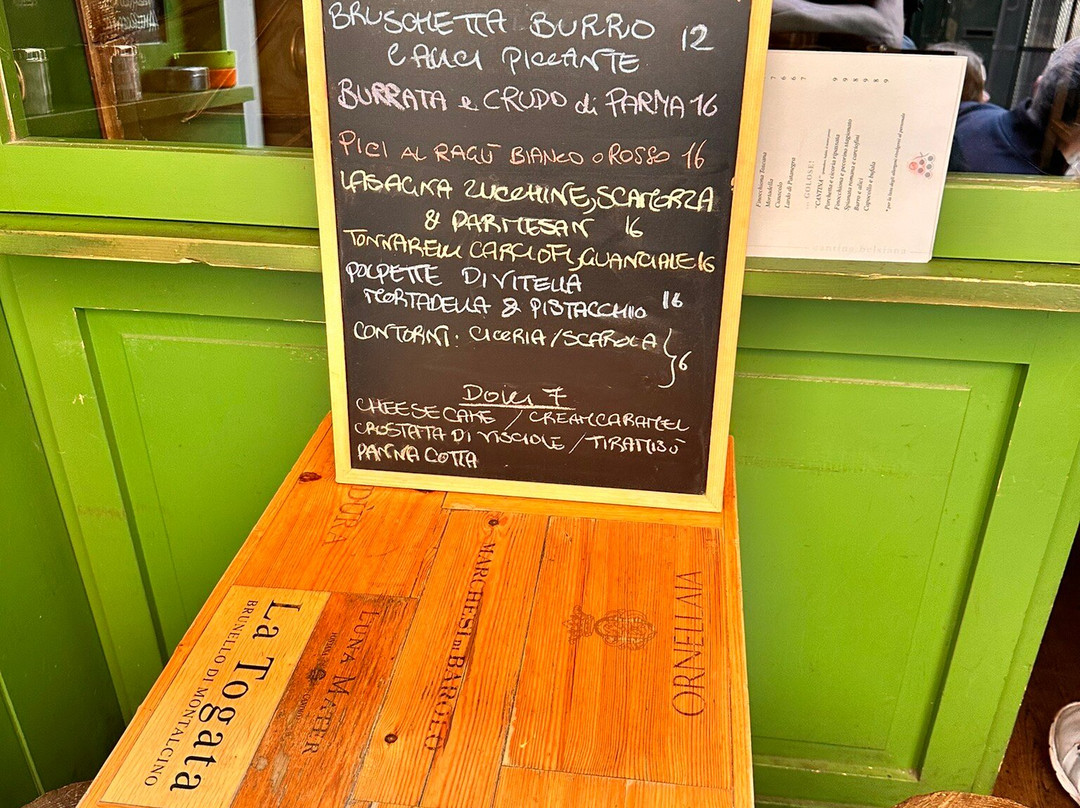 BRUSCHETTA BURRO 12
E ALICI PICCANTE
BURRATA e CRUDO di PARMA 16
PICI AL RAGÙ BIANCO o ROSSO 16
LASAGNA ZUCCHINE, SCAMORZA
& PARMESAN 16
TONNARELLI CARCIOFI, GUANCIALE 16
POLPETTE DI VITELLA
MORTADELLA & PISTACCHIO 16
CONTORNI: CICORIA / SCAROLA } 6
DOLCI 7
CHEESE CAKE / CREAM CARAMEL
CROSTATA DI VISCIOLE / TIRAMISÙ
PANNA COTTA
Finocchiona Toscana 7
Mortadella 6
Coracolo 6
Lardo di Patanegra 7
GOLOSE!
"CANTINA"
Porchetta e cicoria ripassata 9
Finocchiona e pecorino stagionato 9
Spianata romana e carciofini 8
Burro e alici 8
Capocollo e bufala 9
cantina belsiana
DÙRA
La Togata
BRUNELLO DI MONTALCINO
LUNA MATER
MARCHESI DI BAROLO
ORNELLAIA